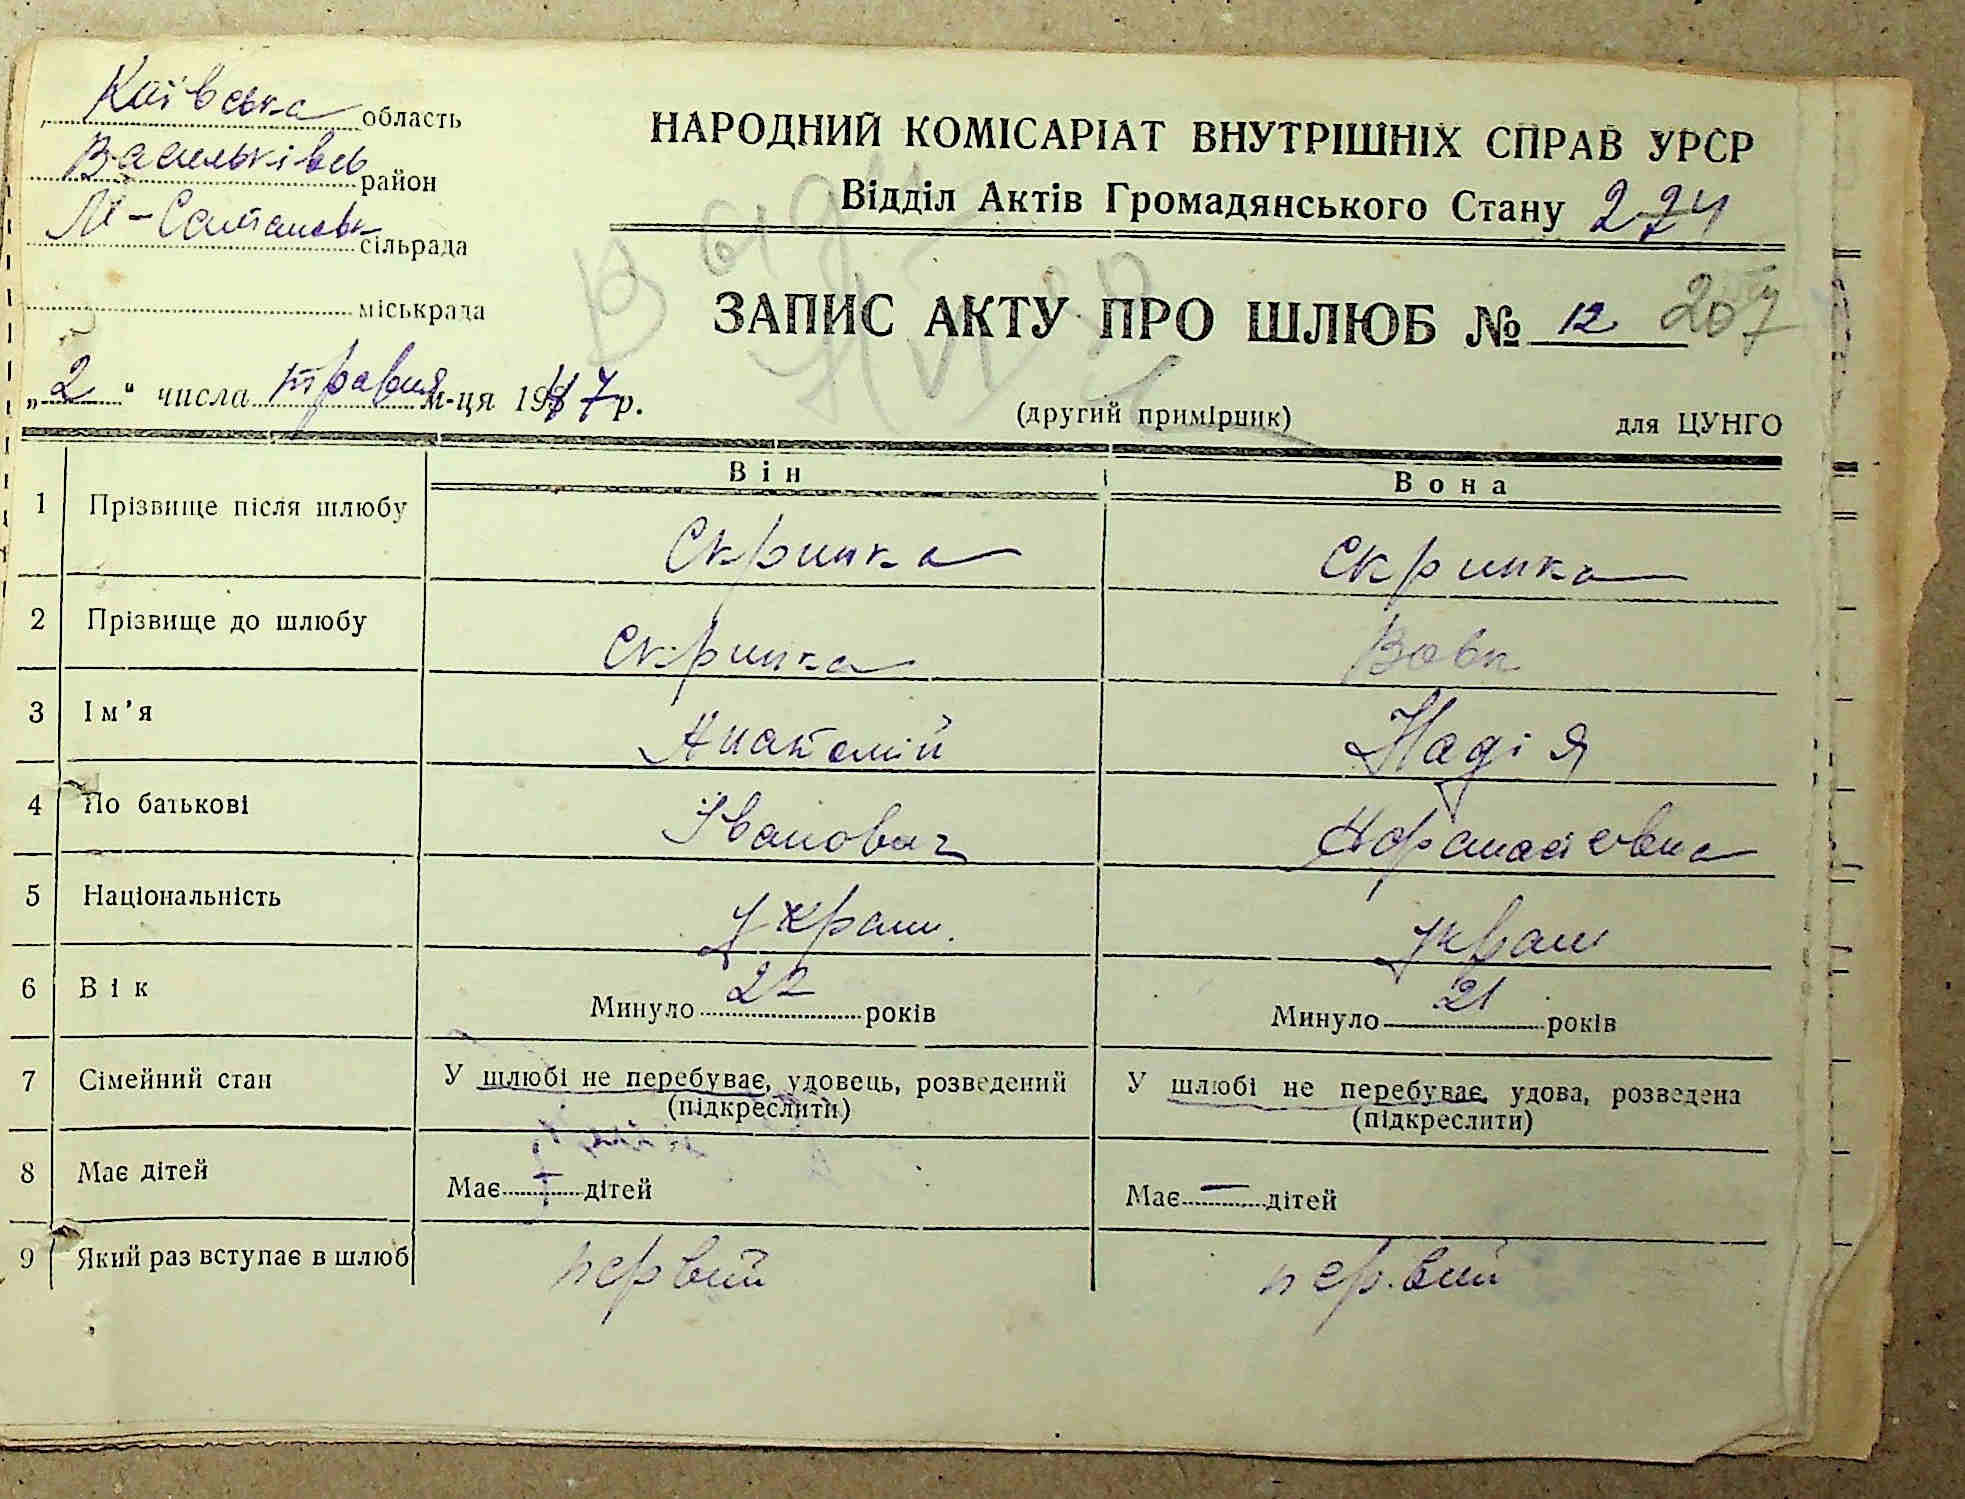 Київська область
Васильківсь район
М-Салтановк сільрада
міськрада
НАРОДНИЙ КОМІСАРІАТ ВНУТРІШНІХ СПРАВ УРСР
Відділ Актів Громадянського Стану 274
ЗАПИС АКТУ ПРО ШЛЮБ № 12 207
„2" числа травня м-ця 1947р.
(другий примірник) для ЦУНГО
Він Вона
1 Прізвище після шлюбу Скрипка Скрипка
2 Прізвище до шлюбу Скрипка Вовк
3 Ім'я Анатолій Надія
4 По батькові Іванович
5 Національність україн. україн
6 Вік Минуло 22 років Минуло 21 років
7 Сімейний стан У шлюбі не перебуває, удовець, розведений У шлюбі не перебуває, удова, розведена
(підкреслити) (підкреслити)
8 Має дітей Має - дітей Має - дітей
9 Який раз вступає в шлюб первий первий